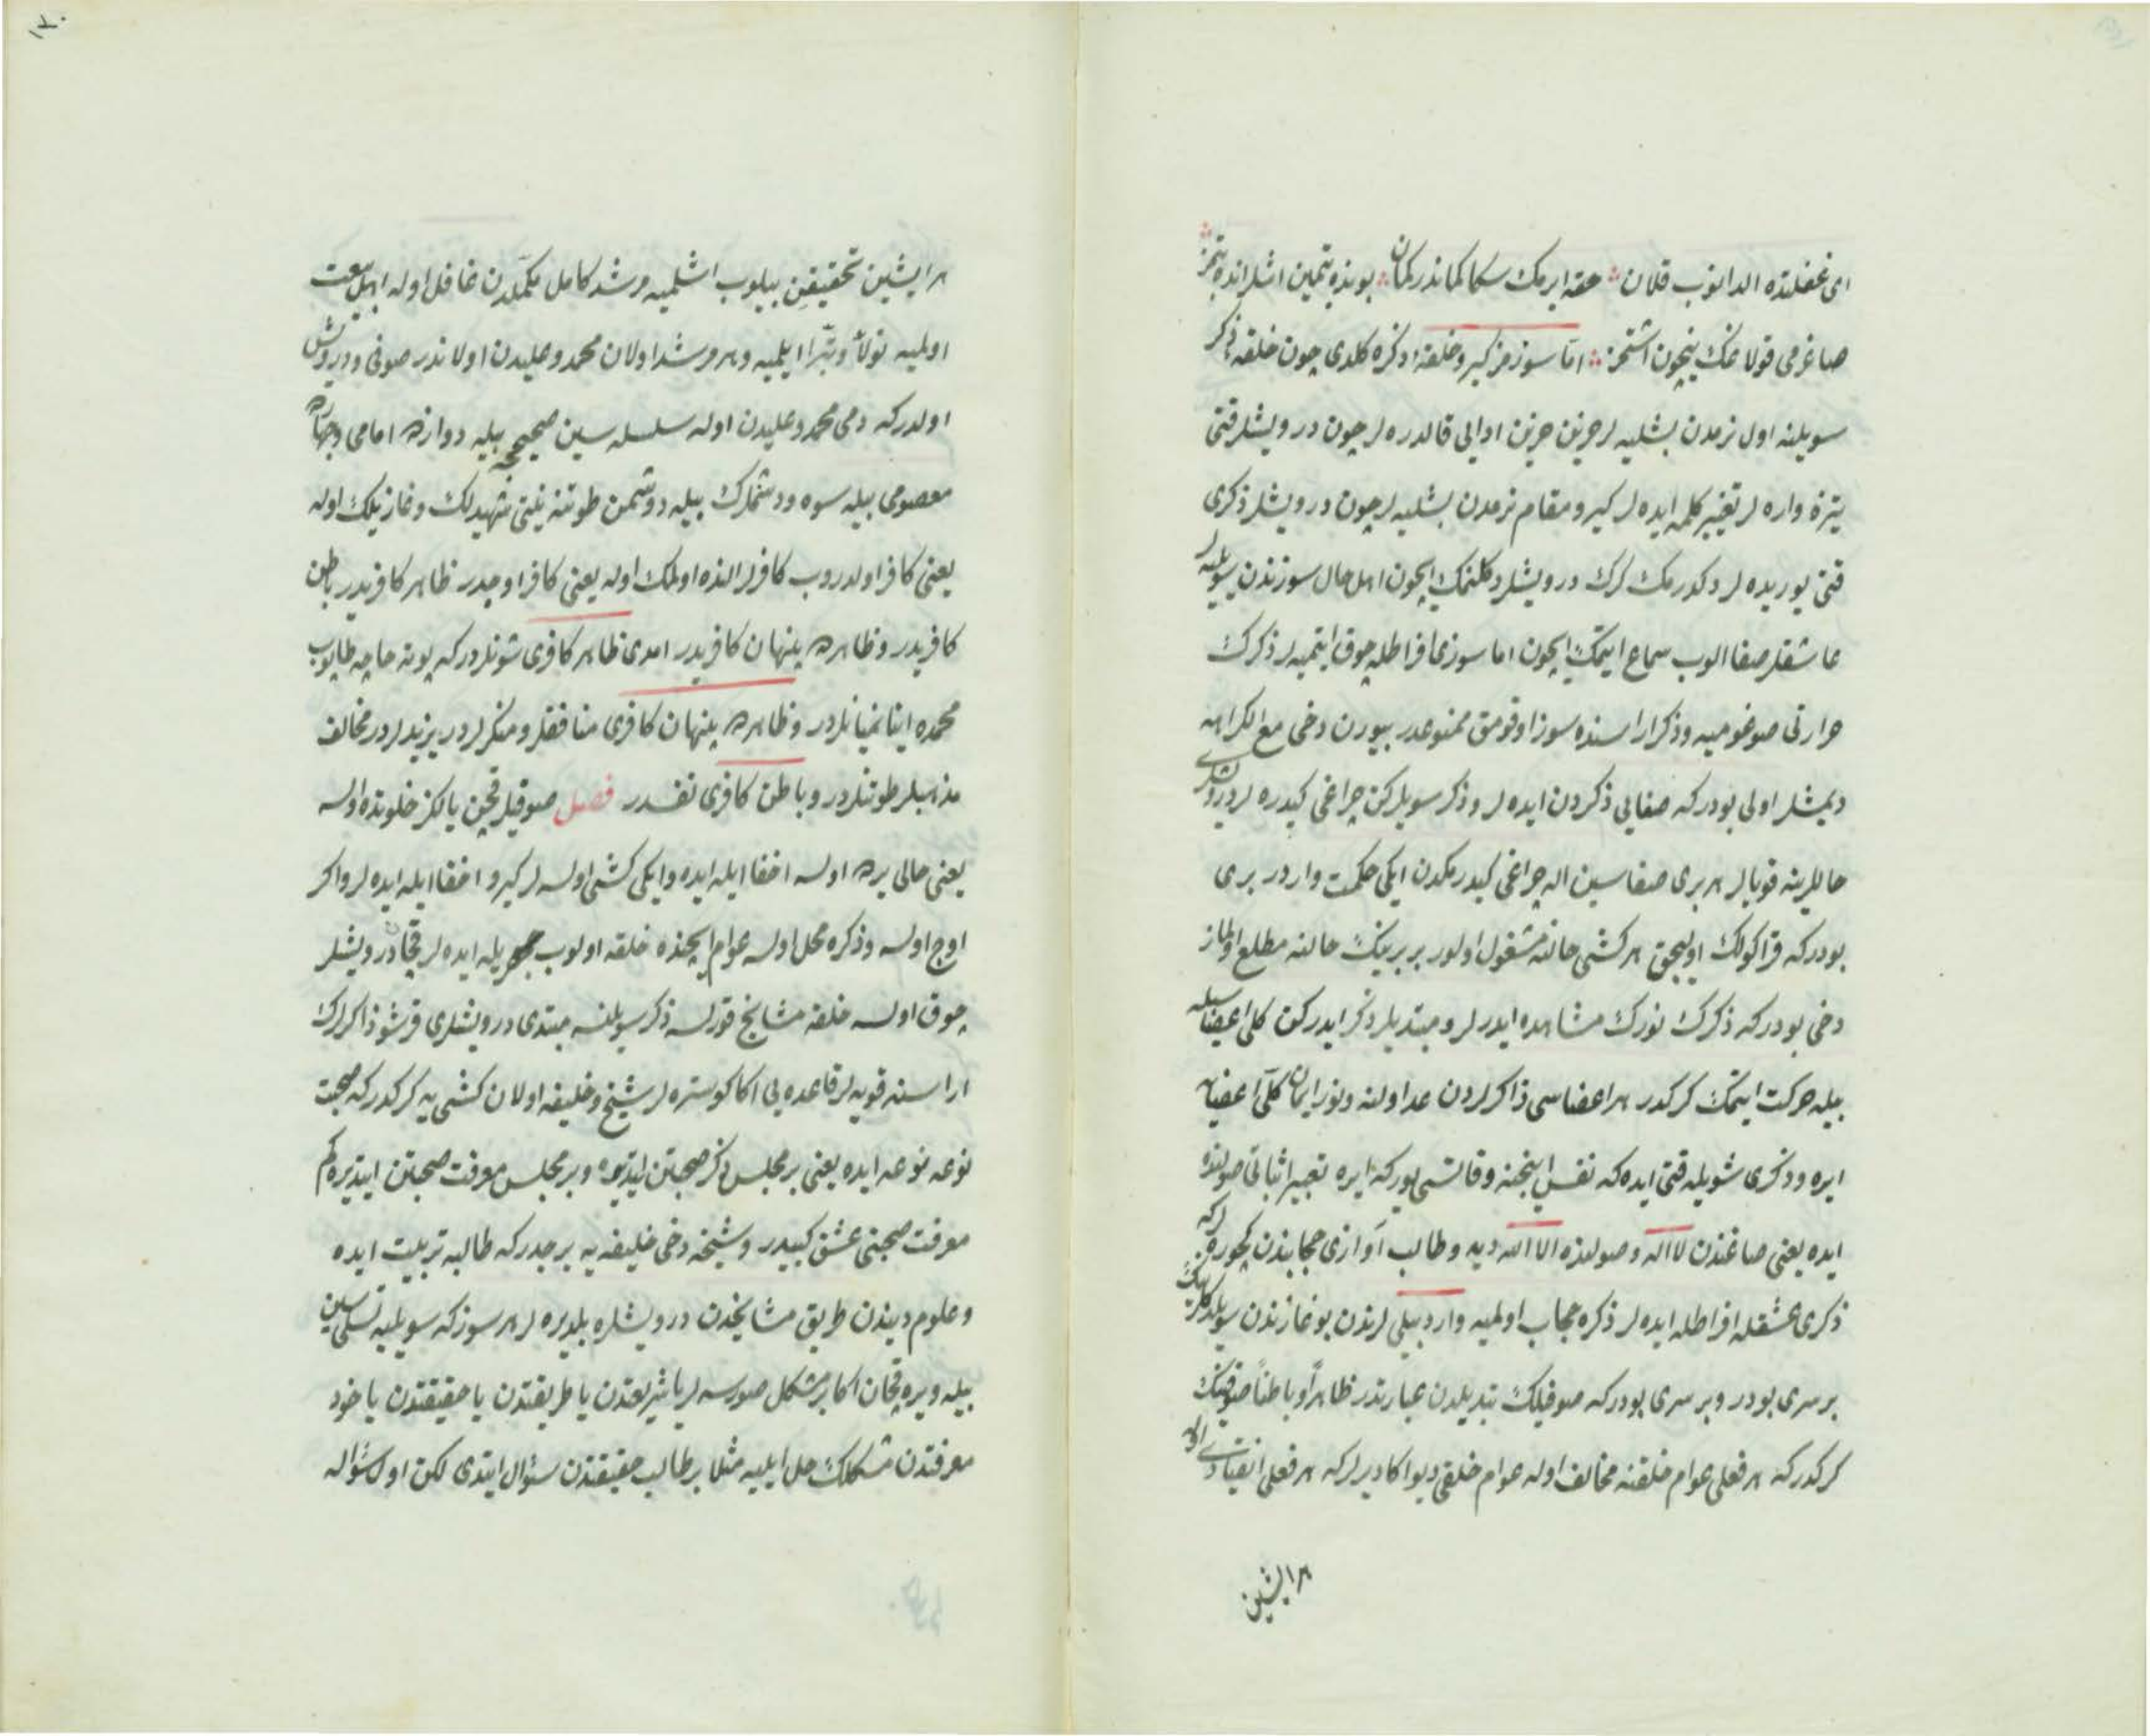 ای غفلتده الدانوب قلان حقه ایرمك سكا كماندر كمان بونده یتمین اشلر انده یتمز
صاغرمی قولاغك ینچون اشتمز اما سوزمز كیرو خلقه ذكره كلدی چون خلقه ذكر
سویلنه اول نرمدن بشلیه لر حزین حزین ادایی قالدره لر چون درویشلر قتی
یتزه واره لر تغییر كلمه ایده لر كیرو مقام نرمدن بشلیه لر چون درویشلر ذكری
قتی یوریده لر دكدرمك كرك درویشلر دكلنمك ایچون اهل حال سوزندن سویلیه لر
عاشقلر صفا الوب سماع ایتمك ایچون اما سوزی افراطله چوق ایتمیه لر ذكرك
حرارتی صوغومیه و ذكر اراسنده سوز اوقومق ممنوعدر بیورن دخی مع الكراهه
دیمشلر اولی بودركه صفایی ذكردن ایده لر و ذكر سویلركن چراغی كیدره لر درویشلری
حاللرینه قویالر هر بری صفاسین اله چراغی كیدرمكدن ایكی حكمت واردر بری
بودركه قراكولك اولیجق هر كشی حالنه مشغول اولور بربرینك حالنه مطلع اولماز
دخی بودركه ذكرك نورك مشاهده ایدرلر و مبتدیلر ذكر ایدركن كلی اعضاسیله
بیله حركت ایتمك كركدر هر اعضاسی ذاكرلردن عد اولنه و نور ایمان كلی اعضایه
ایره و ذكری شویله قتی ایده كه نفس اینجنه و قاتسی یوركه ایره تعبیر اثباتی صولنده
ایده یعنی صاغندن لا اله و صولنده الا الله دیه و طالب آوازی حجابندن كچوره لر كه
ذكری عشقله افراطله ایده لر ذكره حجاب اولمیه و اردبیلی لرندن بوغازندن سویلدكلرینك
بر سری بودر و بر سری بودركه صوفیلك تبدیلدن عبارتدر ظاهرا و باطنا صوفینك
كركدركه هر فعلی عوام خلقنه مخالف اوله عوام خلقی دیو اكا دیرلركه هر فعلی انقیادی
هر ایشین
هر ایشین تحقیقین بیلوب اشلمیه مرشد كامل مكملدن غافل اوله اهل بیعت
اولمیه تولا و تبرا ایلمیه و هر مرشد اولان محمد و علیدن اولاندر صوفی و درویش
اولدركه دمی محمد و علیدن اوله سلسله سین صحیح بیله دوازده امامی و چهارده
معصومی بیله سوه و دشمنلرك بیله دوشمن طوتنه نیتی شهیدلك و غازیلك اوله
یعنی كافر اولدروب كافرلر النده اولمك اوله یعنی كافر اوچدر ظاهر كافریدر باطن
كافریدر و ظاهرده پنهان كافریدر امدی ظاهر كافری شونلردركه پوته حاچه طاپوب
محمده اینانمیانلردر و ظاهرده پنهان كافری منافقلر و منكرلردر یزیدلردر مخالف
مذهبلر طوتنلردر و باطن كافری نفسدر فصل صوفیلر قچن یالكز خلوتده اولسه
یعنی حالی برده اولسه اخفا ایله ایده و ایكی كشی اولسه لر كیرو اخفا ایله ایده لر و اكر
اوچ اولسه و ذكره محل اولسه عوام ایچنده خلقه اولوب جهریله ایده لر قچان درویشلر
چوق اولسه خلقه مشایخ قورلسه ذكر سویلنسه مبتدی درویشلری قرشو ذاكرلرك
اراسنه قویه لر قاعده یی اكا كوستره لر شیخ و خلیفه اولان كشی یه كركدركه صحبت
نوعه نوعه ایده یعنی بر مجلس ذكر صحبتن ایتدیره و بر مجلس معرفت صحبتن ایتدیره كم
معرفت صحبتی عشق كبیدر و شیخه دخی خلیفه یه برجدركه طالبه تربیت ایده
و علوم دیندن طریق مشایخدن درویشلره بلدیره لر هر سوزكه سویلیه تسلیسین
بیله ویره قچان اكا بر مشكل صورسه لر یا شریعتدن یا طریقتدن یا حقیقتدن یا خود
معرفتدن مشكلك حل ایلیه مثلا بر طالب حقیقتدن سئوال ایتدی لكن اول سئواله